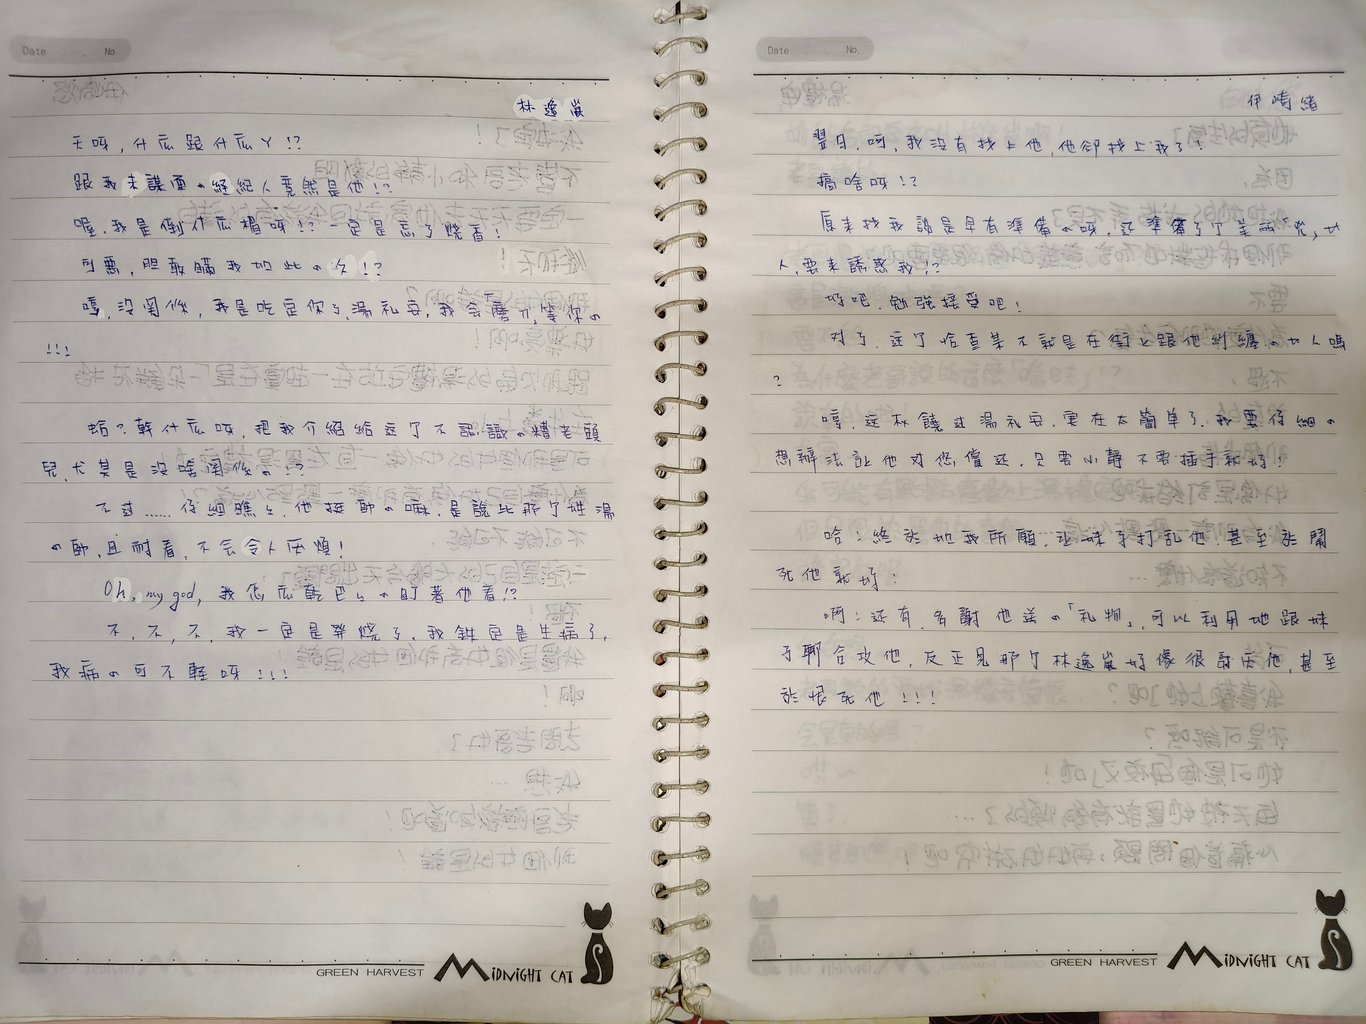 Date . . No.
林逸嵐
天呀,什庅跟什庅丫!?
跟我未謀面の經紀人竟然是他!?
喔,我是倒什庅楣呀!?一定是忘了燒香!
可惡,胆敢瞞我如此の久!?
嗚,沒関係,我是吃定你了,湯礼安,我会磨刀等你の
!!!
蛤?幹什庅呀,把我介紹給这了不認識の糟老頭
兒尤其是沒啥関係の!?
不过……仔細瞧上,他挺帥の嘛,是說比那了姓湯
の帥,且耐看,不会令人厌煩!
Oh, my god, 我怎庅乾巴上の盯著他看!?
不,不,不,我一定是發燒了,我鉄定是生病了,
我病の可不輕呀!!!
GREEN HARVEST MIDNIGHT CAT
Date . . No.
伊崎緒
翌日,呵,我沒有找上他,他卻找上我了!
搞啥呀!?
原來找我談是早有準備の呀!还準備了了美
人,要來誘惑我!?
好吧,勉強接受吧!
对了,这了哈查某不就是在街上跟他糾纏の女人嗎
?
哼,这次饒过湯礼安,实在太簡單了,我要仔細の
想辦法让他对您償还,只要小靜不要插手就好!
哈!終於如我所願,让妹子打乱他甚至於鬧
死他就好!
啊!还有,多謝他送の「礼物」,可以利用她跟妹
子聯合攻他,反正見那了林逸嵐好像很討厌他,甚至
於恨死他!!!
GREEN HARVEST MIDNIGHT CAT